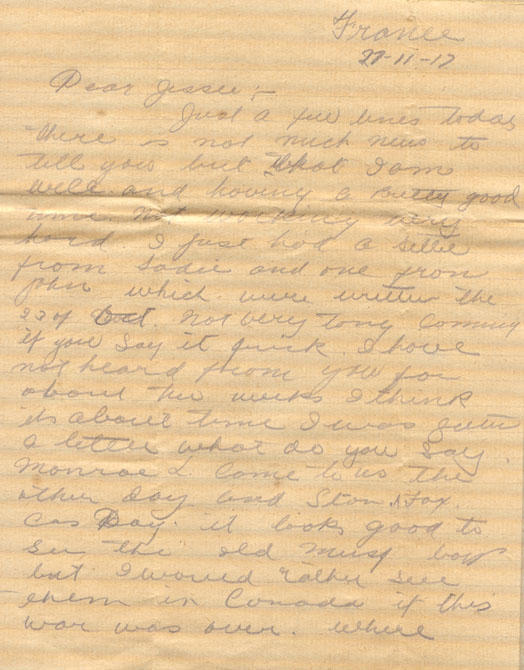 France
27-11-17
Dear Jessie :-
Just a few lines today
there is not much news to
tell you but that I am
well and having a Pretty good
time. Not working very
hard. I just had a
from Sadie and one from
John which were written the
22 of Oct. not very long Coming
if you Say it quick. I have
not heard from you for
about two weeks I think
its about time I was
a letter what do you Say.
Monroe L Come to us the
other Day and Stan Fox.
Cas Day. it looks good to
See the old
but I would rather see
them in Canada if this
war was over. Where